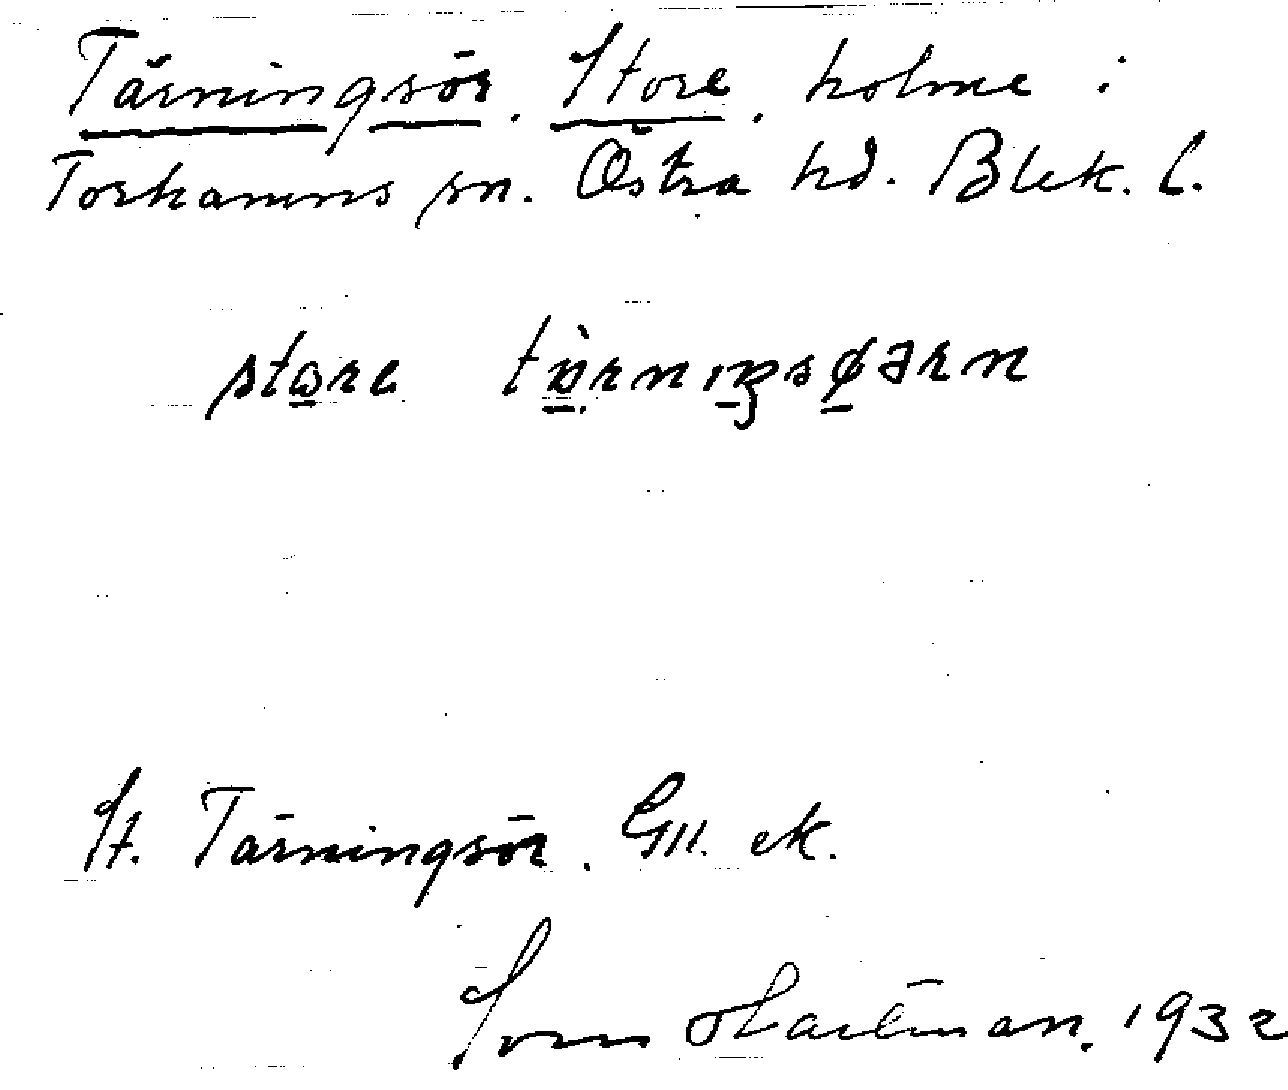 Tärningsör. Store. holme i
Torhamns sn. Östra hd. Blek. l.
store tärningsøarn
St. Tärningsör. Gll. ek.
Sven Hartman. 1932